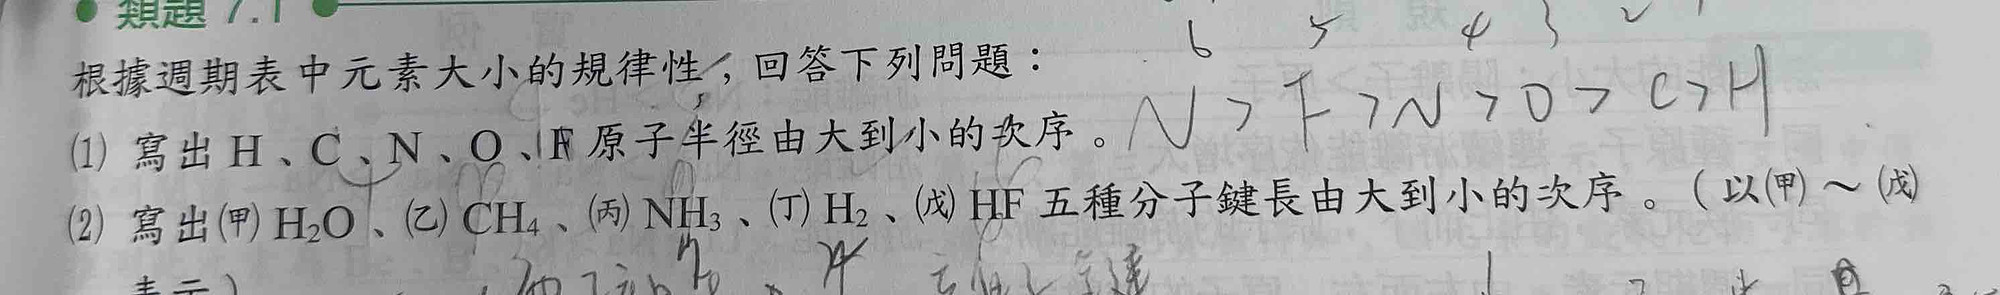 類題 7.1
6 5 4 3 2 1
根據週期表中元素大小的規律性，回答下列問題：
N > F > N > O > C > H
(1) 寫出 H、C、N、O、F 原子半徑由大到小的次序。
(2) 寫出(甲) H₂O、(乙) CH₄、(丙) NH₃、(丁) H₂、(戊) HF 五種分子鍵長由大到小的次序。（以(甲)～(戊)
表示）